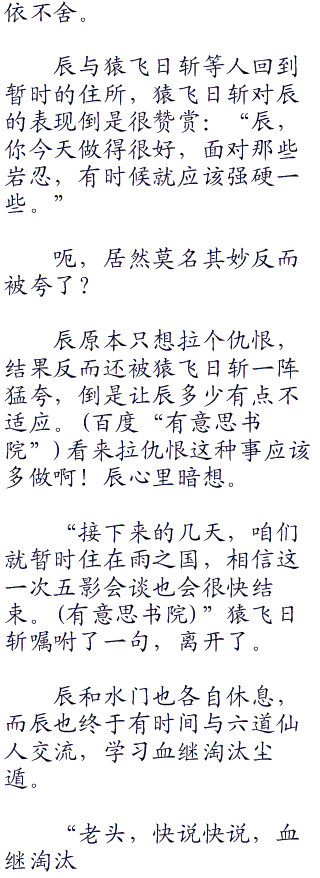 依不舍。
辰与猿飞日斩等人回到
暂时的住所，猿飞日斩对辰
的表现倒是很赞赏：“辰，
你今天做得很好，面对那些
岩忍，有时候就应该强硬一
些。”
呃，居然莫名其妙反而
被夸了？
辰原本只想拉个仇恨，
结果反而还被猿飞日斩一阵
猛夸，倒是让辰多少有点不
适应。(百度“有意思书
院”)看来拉仇恨这种事应该
多做啊！辰心里暗想。
“接下来的几天，咱们
就暂时住在雨之国，相信这
一次五影会谈也会很快结
束。(有意思书院)”猿飞日
斩嘱咐了一句，离开了。
辰和水门也各自休息，
而辰也终于有时间与六道仙
人交流，学习血继淘汰尘
遁。
“老头，快说快说，血
继淘汰